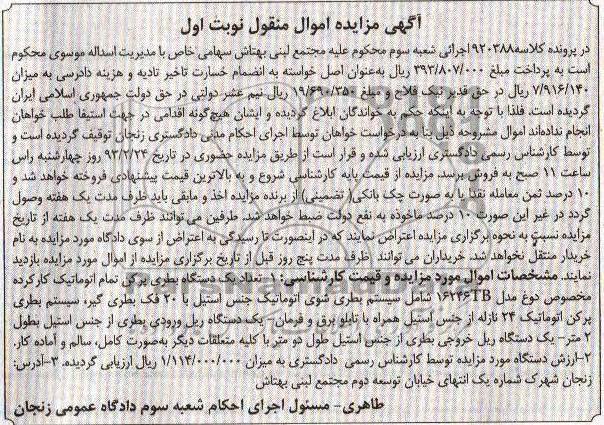 آگهی مزایده اموال منقول نوبت اول
در پرونده کلاسه ۹۲۰۳۸۸ اجرائی شعبه سوم محکوم علیه مجتمع لبنی بهتاش سهامی خاص با مدیریت اسداله موسوی محکوم
است به پرداخت مبلغ ۳۹۳/۸۰۷/۰۰۰ ریال به‌عنوان اصل خواسته به انضمام خسارت تاخیر تادیه و هزینه دادرسی به میزان
۷/۹۱۶/۱۴۰ ریال در حق قدیر نیک فلاح و مبلغ ۱۹/۶۹۰/۳۵۰ ریال نیم عشر دولتی در حق دولت جمهوری اسلامی ایران
گردیده است. فلذا با توجه به اینکه حکم به خواندگان ابلاغ گردیده و ایشان هیچ‌گونه اقدامی در جهت استیفا طلب خواهان
انجام نداده‌اند اموال مشروحه ذیل بنا به درخواست خواهان توسط اجرای احکام مدنی دادگستری زنجان توقیف گردیده است و
توسط کارشناس رسمی دادگستری ارزیابی شده و قرار است از طریق مزایده حضوری در تاریخ ۹۳/۲/۲۴ روز چهارشنبه راس
ساعت ۱۱ صبح به فروش برسد. مزایده از قیمت پایه کارشناسی شروع و به بالاترین قیمت پیشنهادی فروخته خواهد شد و
۱۰ درصد ثمن معامله نقدا یا به صورت چک بانکی( تضمینی) از برنده مزایده اخذ و مابقی باید ظرف مدت یک هفته وصول
گردد در غیر این صورت ۱۰ درصد ماخوذه به نفع دولت ضبط خواهد شد. طرفین می توانند ظرف مدت یک هفته از تاریخ
مزایده نسبت به نحوه برگزاری مزایده اعتراض نمایند که در اینصورت تا رسیدگی به اعتراض از سوی دادگاه مورد مزایده به نام
خریدار منتقل نخواهد شد. خریداران می توانند ظرف مدت پنج روز قبل از تاریخ برگزاری مزایده از اموال مورد مزایده بازدید
نمایند. مشخصات اموال مورد مزایده و قیمت کارشناسی: ۱- تعداد یک دستگاه بطری پرکن تمام اتوماتیک کارکرده
مخصوص دوغ مدل ۱۶۲۴۶TB شامل سیستم بطری شوی اتوماتیک جنس استیل با ۲۰ فک بطری گیر، سیستم بطری
پرکن اتوماتیک ۲۴ نازله از جنس استیل همراه با تابلو برق و فرمان- یک دستگاه ریل ورودی بطری از جنس استیل بطول
۲ متر- یک دستگاه ریل خروجی بطری از جنس استیل طول دو متر با کلیه متعلقات دیگر به‌صورت کامل، سالم و آماده کار.
۲-ارزش دستگاه مورد مزایده توسط کارشناس رسمی دادگستری به میزان ۱/۱۱۴/۰۰۰/۰۰۰ ریال ارزیابی گردیده. ۳-آدرس:
زنجان شهرک شماره یک انتهای خیابان توسعه دوم مجتمع لبنی بهتاش
طاهری- مسئول اجرای احکام شعبه سوم دادگاه عمومی زنجان